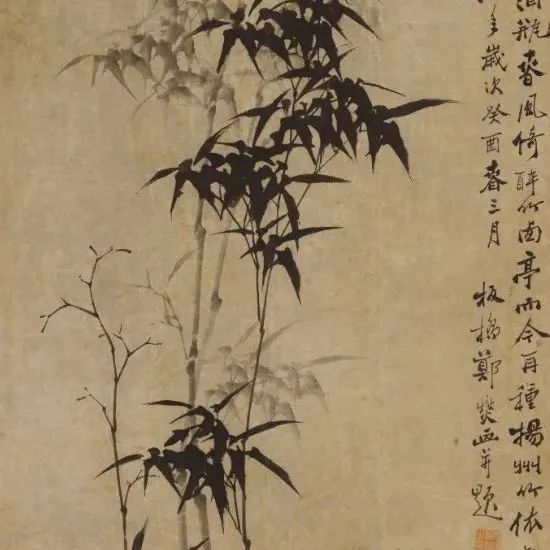 瓶春風倚醉竹西亭而今再種揚州竹依
歲次癸酉春三月 板橋鄭燮畫并題